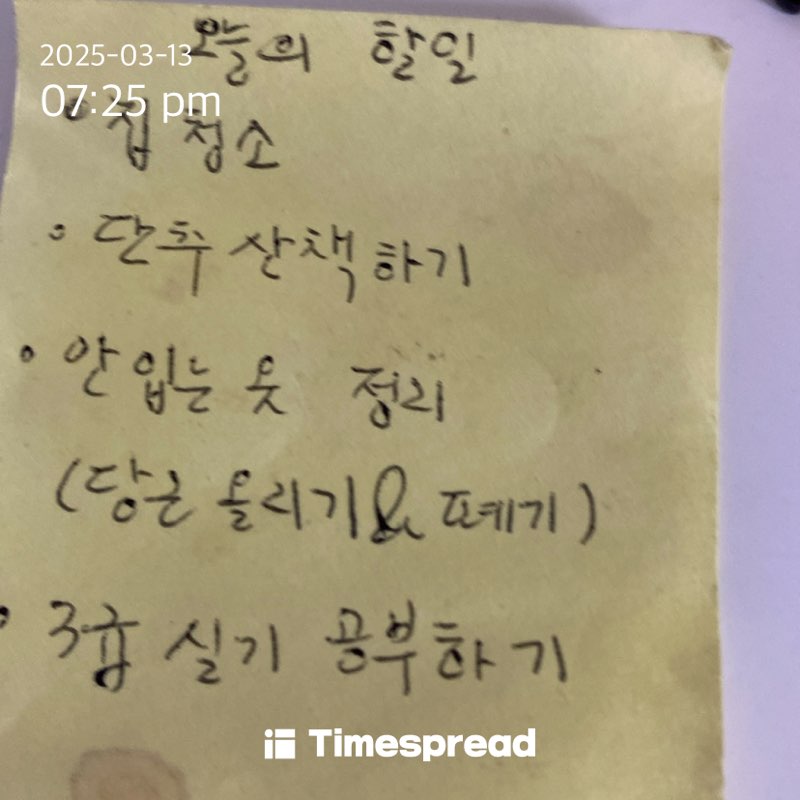 2025-03-13
07:25 pm
오늘의 할일
• 집 청소
• 단추 산책하기
• 안 입는 옷 정리
(당근 올리기 & 폐기)
• 3급 실기 공부하기
Timespread